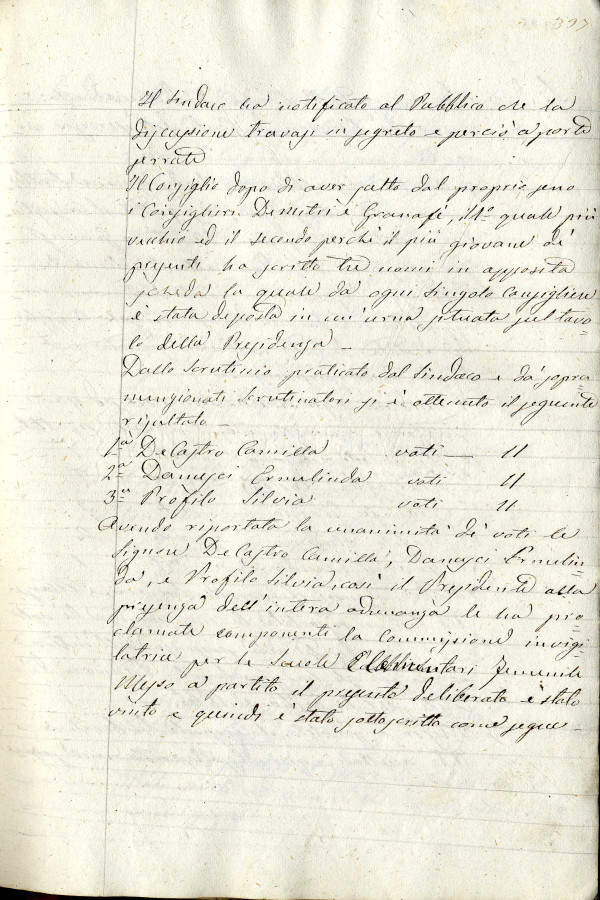 397
Il Sindaco ha notificato al Pubblico che la
discussione travasi in segreto e perciò a porte
serrate
Il Consiglio dopo di aver fatto dal proprio seno
i Consiglieri Demitri e Granafè, il 1º quale più
vecchio ed il secondo perchè il più giovane de'
presenti ha scritto tre nomi in apposita
scheda la quale da ogni singolo Consigliere
è stata deposta in un'urna situata sul tavo=
lo della Presidenza _
Dallo scrutinio praticato dal Sindaco e da' sopra=
menzionati Scrutinatori si è ottenuto il seguente
risultato _
1ª DeCastro Camilla voti — 11
2ª Danusci Ermelinda voti 11
3ª Profilo Silvia voti 11
Avendo riportata la unanimità de' voti le
Signore DeCastro Camilla, Danusci Ermelin=
da, e Profilo Silvia, così il Presidente alla
presenza dell'intera adunanza le ha pro=
clamate componenti la Commissione invigi=
latrice per le Scuole Elementari femminile
Messo a partito il presente deliberato è stato
vinto e quindi è stato sottoscritto come segue _